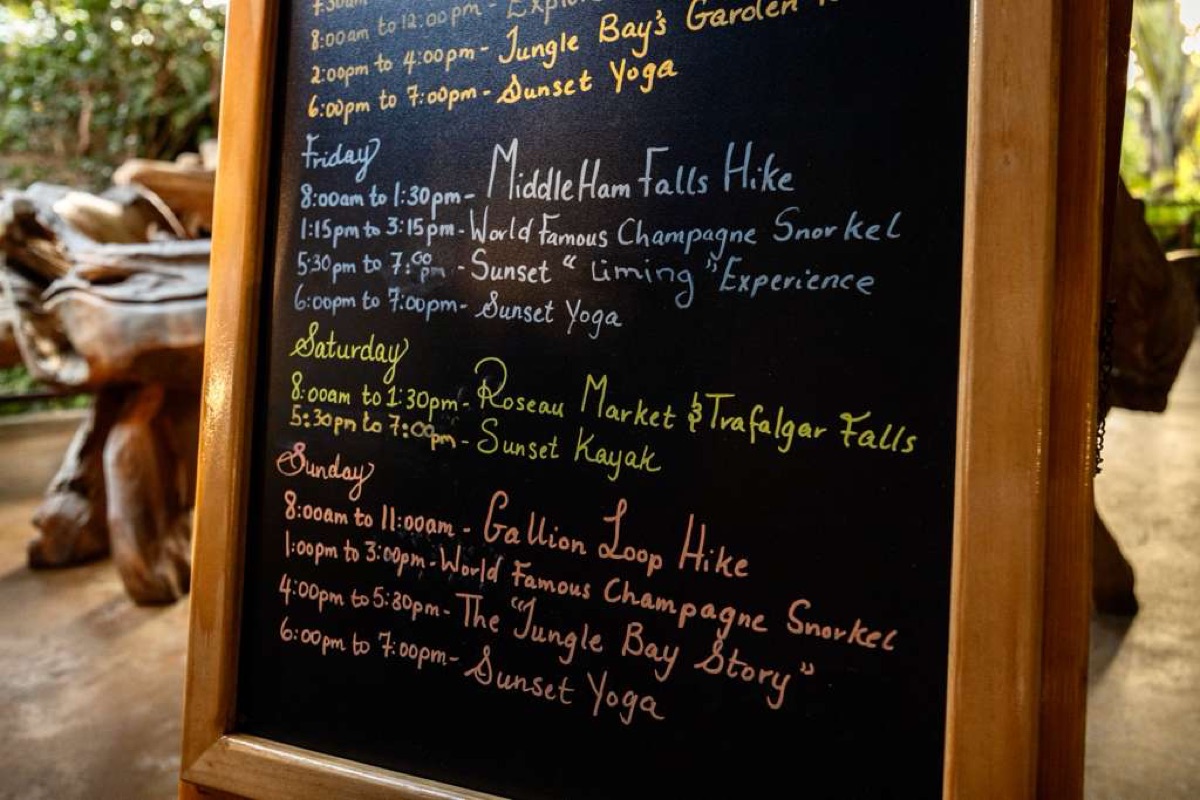 7:30am
8:00am to 12:00pm -
2:00pm to 4:00pm - Jungle Bay's Garden
6:00pm to 7:00pm - Sunset Yoga
Friday
8:00am to 1:30pm - MiddleHam Falls Hike
1:15pm to 3:15pm - World Famous Champagne Snorkel
5:30pm to 7:00pm - Sunset "Liming" Experience
6:00pm to 7:00pm - Sunset Yoga
Saturday
8:00am to 1:30pm - Roseau Market & Trafalgar Falls
5:30pm to 7:00pm - Sunset Kayak
Sunday
8:00am to 11:00am - Gallion Loop Hike
1:00pm to 3:00pm - World Famous Champagne Snorkel
4:00pm to 5:30pm - The "Jungle Bay Story"
6:00pm to 7:00pm - Sunset Yoga